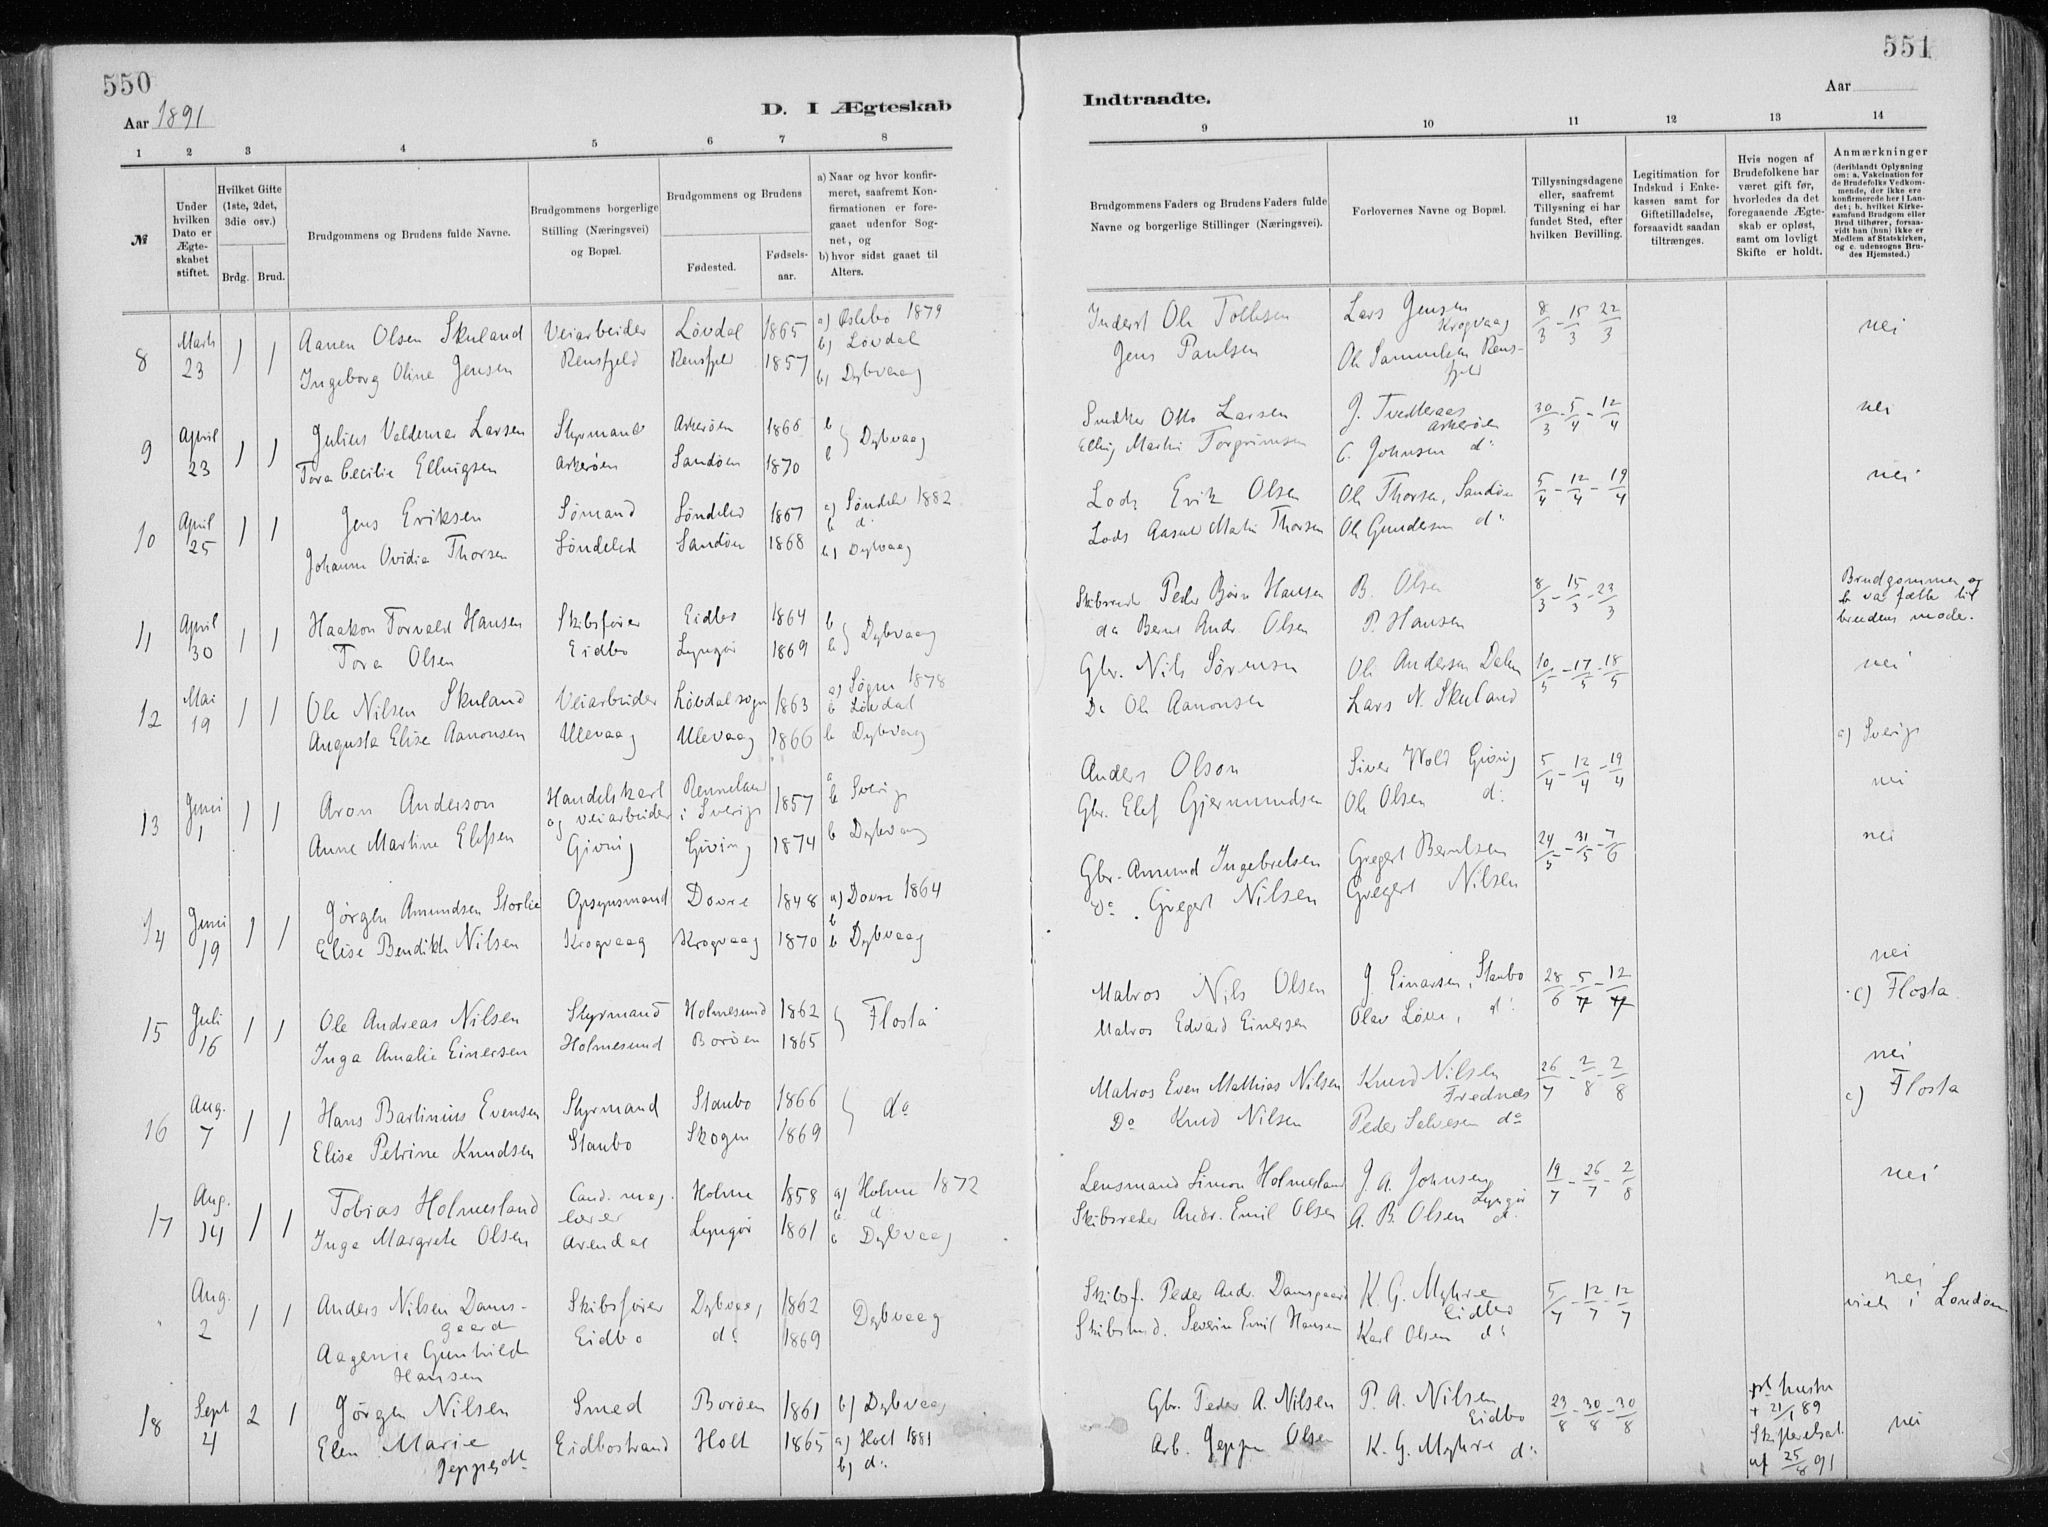 550
551
Aar 1891
D. I Ægteskab
Indtraadte.
Aar
1 2 3 4 5 6 7 8 9 10 11 12 13 14
№
Under hvilken Dato er Ægteskabet stiftet.
Hvilket Gifte (1ste, 2det, 3die osv.)
Brdg. Brud.
Brudgommens og Brudens fulde Navne.
Brudgommens borgerlige Stilling (Næringsvei) og Bopæl.
Brudgommens og Brudens
Fødested. Fødselsaar.
a) Naar og hvor konfirmeret, saafremt Konfirmationen er foregaaet udenfor Sognet, og
b) hvor sidst gaaet til Alters.
Brudgommens Faders og Brudens Faders fulde Navne og borgerlige Stillinger (Næringsvei).
Forlovernes Navne og Bopæl.
Tillysningsdagene eller, saafremt Tillysning ei har fundet Sted, efter hvilken Bevilling.
Legitimation for Indskud i Enkekassen samt for Giftetilladelse, forsaavidt saadan tiltrænges.
Hvis nogen af Brudefolkene har været gift før, hvorledes da det foregaaende Ægteskab er opløst, samt om lovligt Skifte er holdt.
Anmærkninger (deriblandt Oplysning om: a. Vakcination for de Brudefolks Vedkommende, der ikke ere konfirmerede her i Landet; b. hvilket Kirkesamfund Brudgom eller Brud tilhører, forsaavidt han (hun) ikke er Medlem af Statskirken, og c. udensogns Brudes Hjemsted.)
8 Marts 23 1 1 Aanen Olsen Skuland Veiarbeider Løvdal 1865 a) Øslebø 1879 b) Løvdal Inderst Ole Tollefsen Lars Jensen Krogvaag 8/3 - 15/3 22/3 nei
Ingeborg Oline Jensen Rensfjeld Rensfjeld 1857 b) Dybvaag Jens Paulsen Ole Samuelsen Rensfjeld
9 April 23 1 1 Julius Valdemar Larsen Styrmand Askerøen 1866 b Dybvaag Snedker Otto Larsen J. Tvedteraas Askerøen 30/3 - 5/4 - 12/4 nei
Tora Cecilie Ellingsen Askerøen Sandøen 1870 b Elling Martin Torgrimsen C. Johnsen do
10 April 25 1 1 Jens Eriksen Sømand Søndeled 1867 a) Søndeled 1882 b do Lods Erik Olsen Ole Thorsen, Sandøen 5/4 - 12/4 - 19/4 nei
Johanne Ovidia Thorsen Søndeled Sandøen 1868 b) Dybvaag Lods Aasuld Martin Thorsen Ole Gundersen do
11 April 30 1 1 Haakon Torvald Hansen Skibsfører Eidbo 1864 b Dybvaag Skibsreder Peder Bjørn Hansen B. Olsen 8/3 - 15/3 - 23/3 Brudgommen og b var fætter til brudens moder.
Tora Olsen Eidbo Lyngør 1869 b do Bernt Andr. Olsen P. Hansen
12 Mai 19 1 1 Ole Nilsen Skuland Veiarbeider Løvdal sogn 1863 a) Søgne 1878 b Løvdal Gbr. Nils Sørensen Ole Andersen Dalen 10/5 - 17/5 - 18/5 nei
Augusta Elise Aanonsen Ulevaag Ulevaag 1866 b Dybvaag Do Ole Aanonsen Lars N. Skuland
13 Juni 1 1 1 Aron Anderson Handelskarl og veiarbeider Renneland i Sverige 1857 a b Sverige Anders Olson Siver Wold Giving 5/4 - 12/4 - 19/4 a) Sverige nei
Anne Martine Elefsen Giving Giving 1874 b Dybvaag Gbr. Elef Gjermundsen Ole Olsen do
14 Juni 19 1 1 Jørgen Amundsen Storlie Opsynsmand Dovre 1848 a) Dovre 1864 b Gbr. Amund Ingebretsen Gregert Berntsen 24/5 - 31/5 - 7/6 nei
Elise Bendikte Nilsen Krogvaag Krogvaag 1870 b Dybvaag Do. Gregert Nilsen Gregert Nilsen
15 Juli 16 1 1 Ole Andreas Nilsen Styrmand Holmesund 1862 Flosta Matros Nils Olsen J. Einarsen, Staubo 28/6 - 5/7 - 12/7 nei c) Flosta
Inga Amalie Einersen Holmesund Borøen 1865 Matros Edvard Einersen Olav Løve, do
16 Aug. 7 1 1 Hans Bartinius Evensen Styrmand Staubo 1866 do Matros Even Mathias Nilsen Knud Nilsen Frednes 26/7 - 2/8 - 2/8 nei c) Flosta
Elise Petrine Knudsen Staubo Skogen 1869 Do Knud Nilsen Peder Salvesen do
17 Aug. 14 1 1 Tobias Holmesland Cand. mag. lærer Holme 1858 a) Holme 1872 b d. Lensmand Simon Holmesland J. A. Johnsen Lyngør 19/7 - 26/7 - 2/8 nei
Inga Margrete Olsen Arendal Lyngør 1861 b Dybvaag Skibsreder Andr. Emil Olsen A. B. Olsen do
" Aug. 2 1 1 Anders Nilsen Damsgaard Skibsfører Dybvaag 1862 Dybvaag Skibsf. Peder Andr. Damsgaard K. G. Myhre Eidbo 5/7 - 12/7 - 12/7 nei viet i London
Aagenie Gunhilde Hansen Eidbo do 1869 Skibsred. Severin Emil Hansen Karl Olsen do
18 Sept 4 2 1 Jørgen Nilsen Smed Borøen 1861 b) Dybvaag Gbr. Peder A. Nilsen P. A. Nilsen Eidbo 23/8 - 30/8 - 30/8 hustru + 21/1 89 Skifteattest af 25/8 91 nei
Elen Marie Jeppesdt. Eidbostrand Holt 1865 a) Holt 1881 b) do Arb. Jeppe Olsen K. G. Myhre do